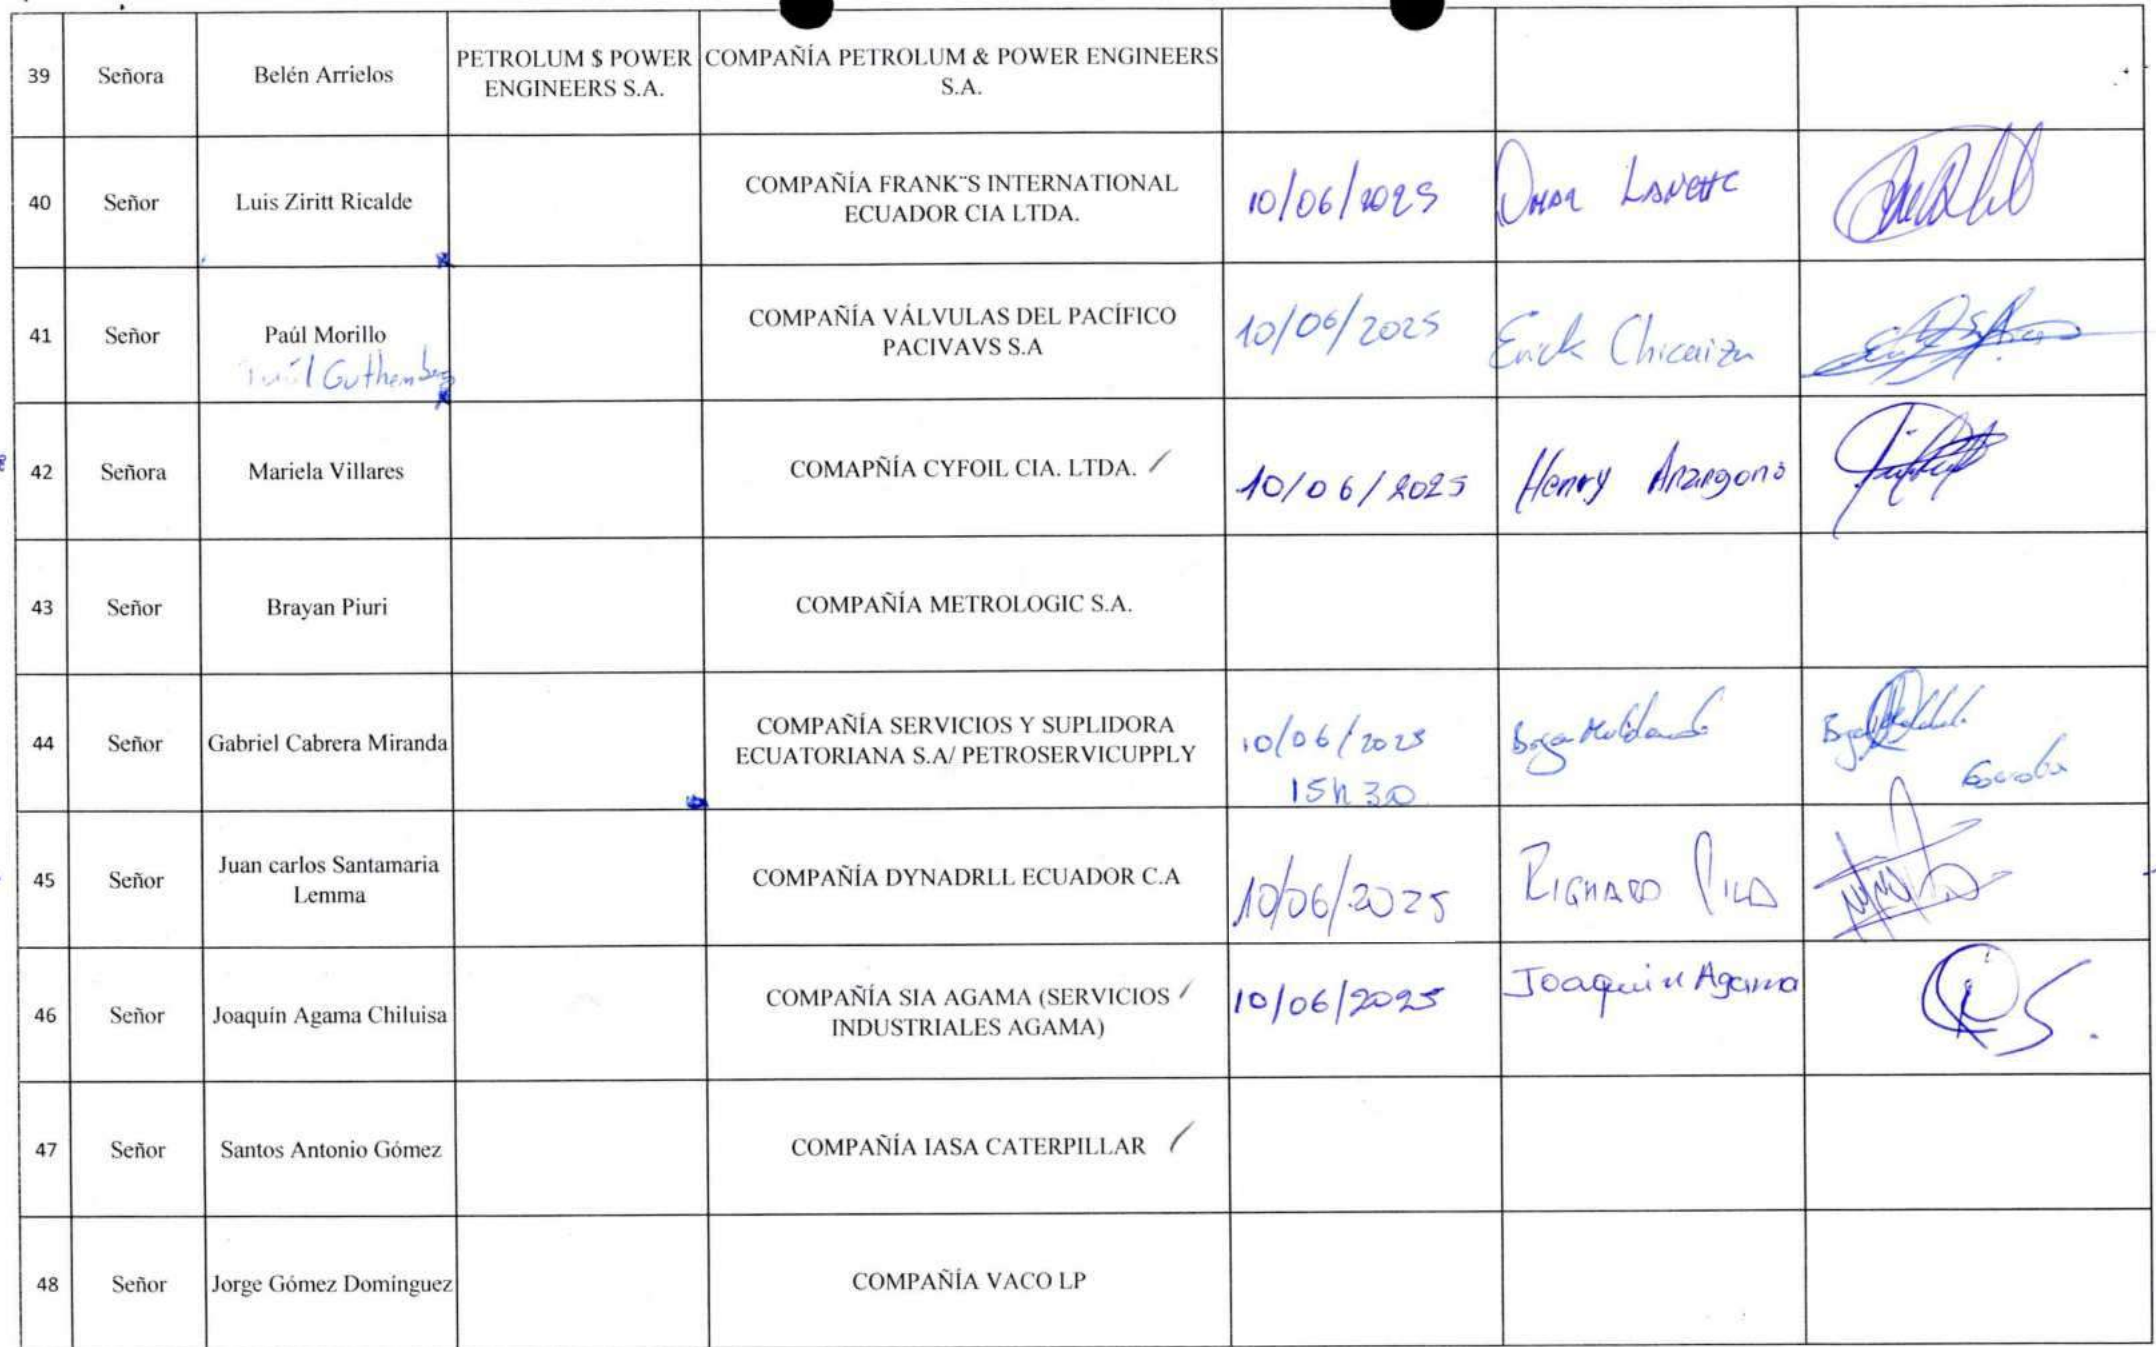 39 Señora Belén Arrielos PETROLUM $ POWER COMPAÑÍA PETROLUM & POWER ENGINEERS
ENGINEERS S.A. S.A.
40 Señor Luis Ziritt Ricalde COMPAÑÍA FRANK¨S INTERNATIONAL
ECUADOR CIA LTDA. 10/06/2025 Omar
41 Señor Paúl Morillo COMPAÑÍA VÁLVULAS DEL PACÍFICO
PACIVAVS S.A 10/06/2025 Erick Chicaiza
Guthemberg
42 Señora Mariela Villares COMAPÑÍA CYFOIL CIA. LTDA. 10/06/2025 Henry
43 Señor Brayan Piuri COMPAÑÍA METROLOGIC S.A.
44 Señor Gabriel Cabrera Miranda COMPAÑÍA SERVICIOS Y SUPLIDORA
ECUATORIANA S.A/ PETROSERVICUPPLY 10/06/2025
15h30
45 Señor Juan carlos Santamaria
Lemma COMPAÑÍA DYNADRLL ECUADOR C.A 10/06/2025 RICHARD PILA
46 Señor Joaquín Agama Chiluisa COMPAÑÍA SIA AGAMA (SERVICIOS
INDUSTRIALES AGAMA) 10/06/2025 Joaquin Agama
47 Señor Santos Antonio Gómez COMPAÑÍA IASA CATERPILLAR
48 Señor Jorge Gómez Domínguez COMPAÑÍA VACO LP